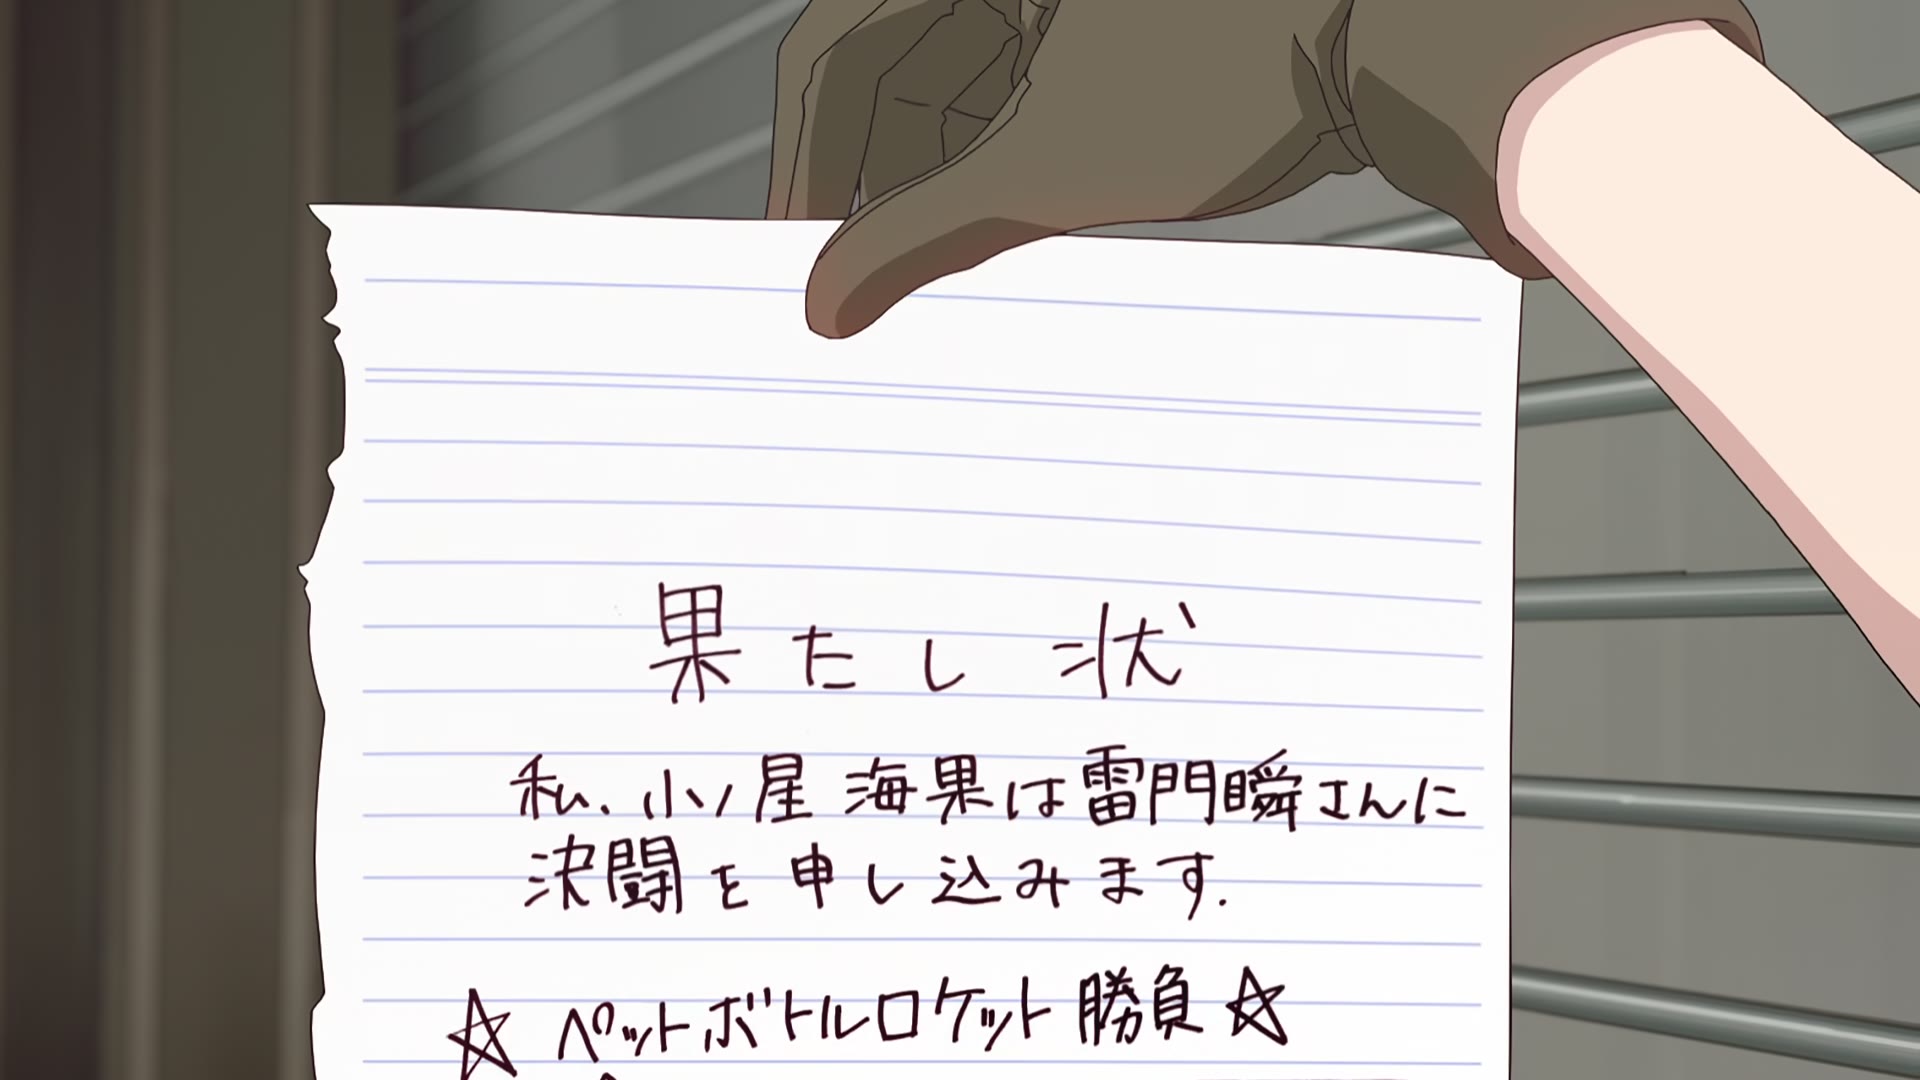 果たし状
私、小ノ星海果は雷門瞬さんに
決闘を申し込みます.
☆ペットボトルロケット勝負☆